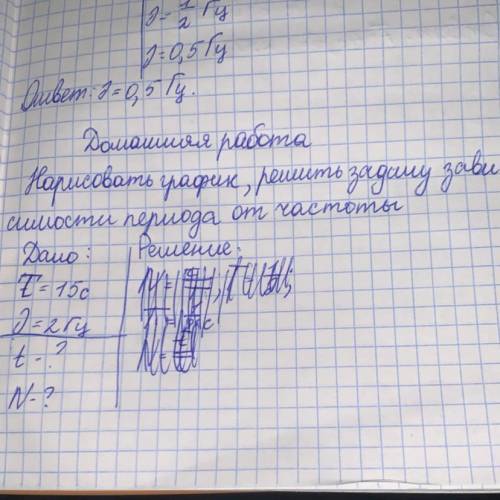 J = 1/2 Гц
J = 0,5 Гц
Ответ: J = 0,5 Гц.
Домашняя работа
Нарисовать график, решить задачу зави
симости периода от частоты
Дано:
Решение:
T = 15с
J = 2 Гц
t - ?
N - ?